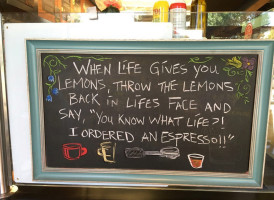 WHEN LIFE GIVES YOU
LEMONS, THROW THE LEMONS
BACK IN LIFES FACE AND
SAY, "YOU KNOW WHAT LIFE?!
I ORDERED AN ESPRESSO!!"